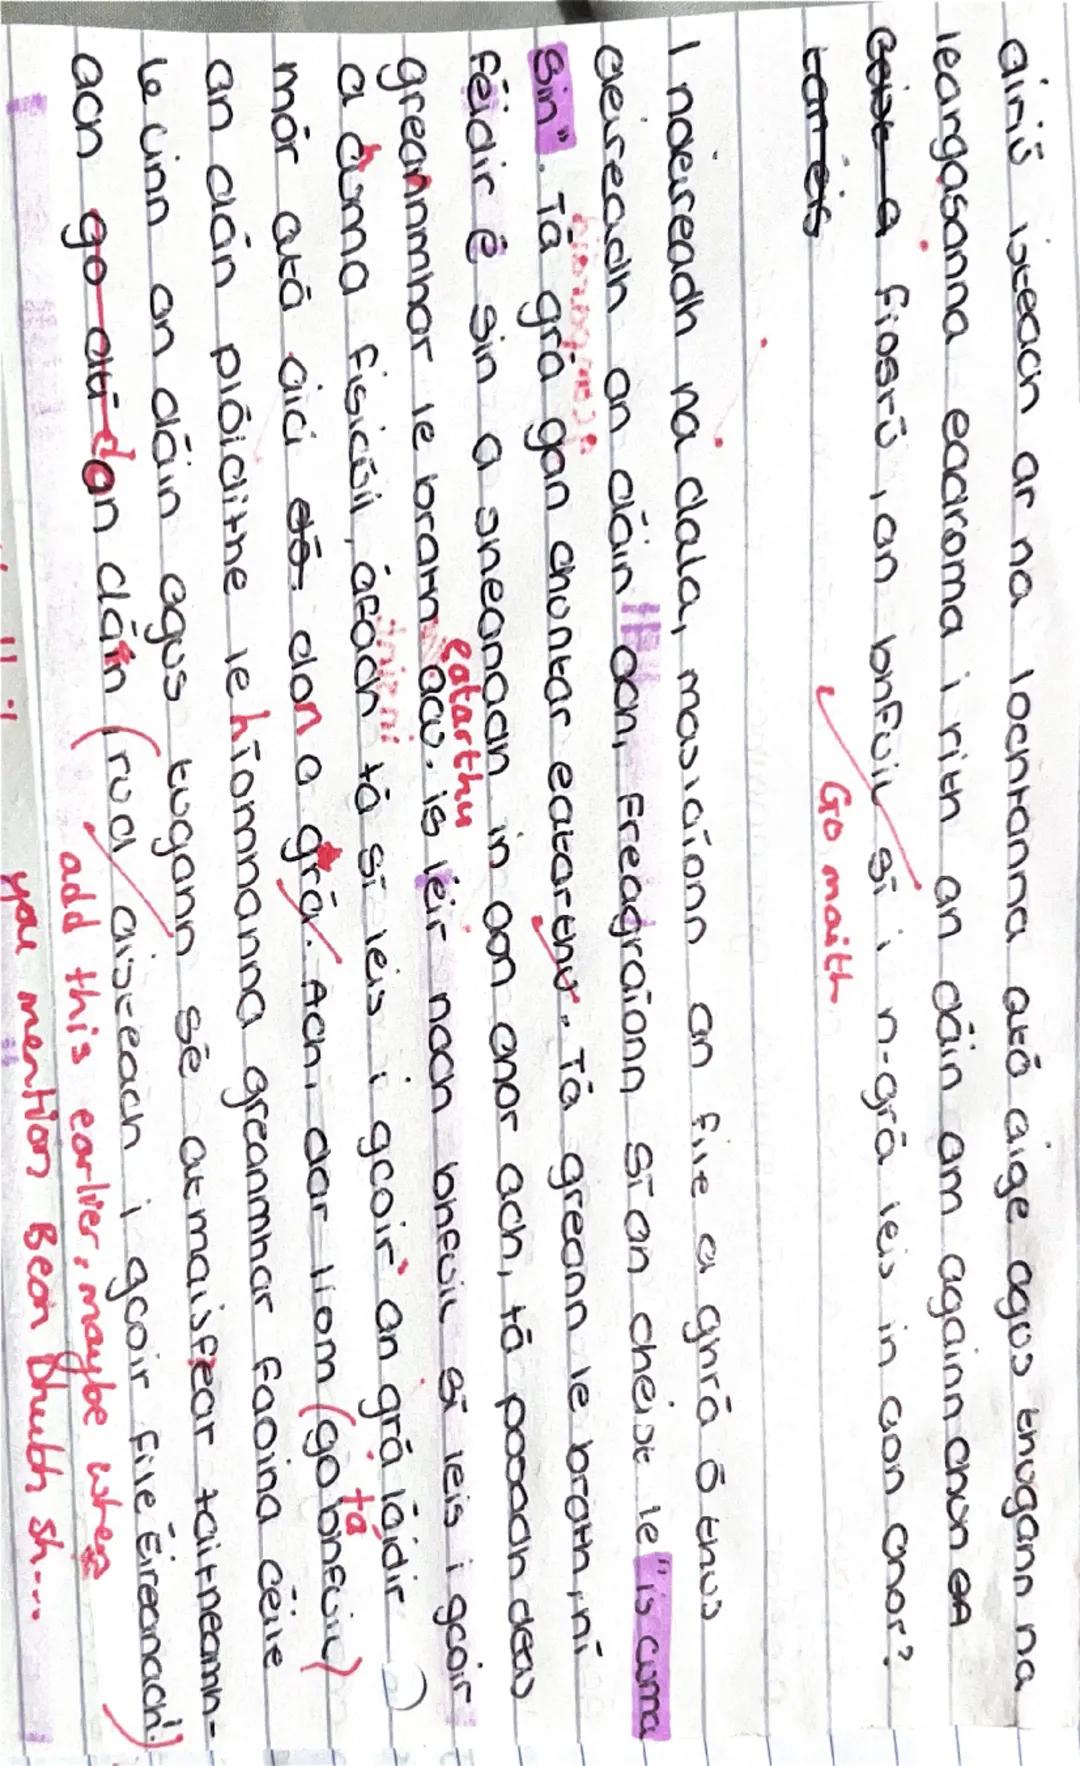 airiú isteach ar na lochtanna atá aige agus thugann na
leargasanna eadroma i rith an dáin am againn chun
a fiosrú, an bhfuil sí i n-grá leis in aon chor?
tar éis
Go maith
I ndeireadh na dala, maslaíonn an file a ghrá ó thús
deireadh an dáin aon, Freagraíonn sí an cheist le "is cuma
sin". Tá grá gan chontar eatarthu. Tá greann le brath, ní
féidir é sin a shéanadh in aon chor ach, tá pósadh deas
greannmhar le brath acu. is léir nach bhfuil sí leis i gcoir
eatarthu
a dhúma fisiciúil, áfach tá sí leis i gcoir an grá láidir
mór atá aici don a grá. Ach, dar liom (go bhfuil)
tá
an dán plóidithe le híomhanna greannmhar faoina céile
le linn an dáin agus tugann sé atmaisféar taitneamh-
ach go dtí don dáin (rud aisteach i gcoir file Éireanach!)
add this earlier, maybe when
you mention Bean Dhubh sh...